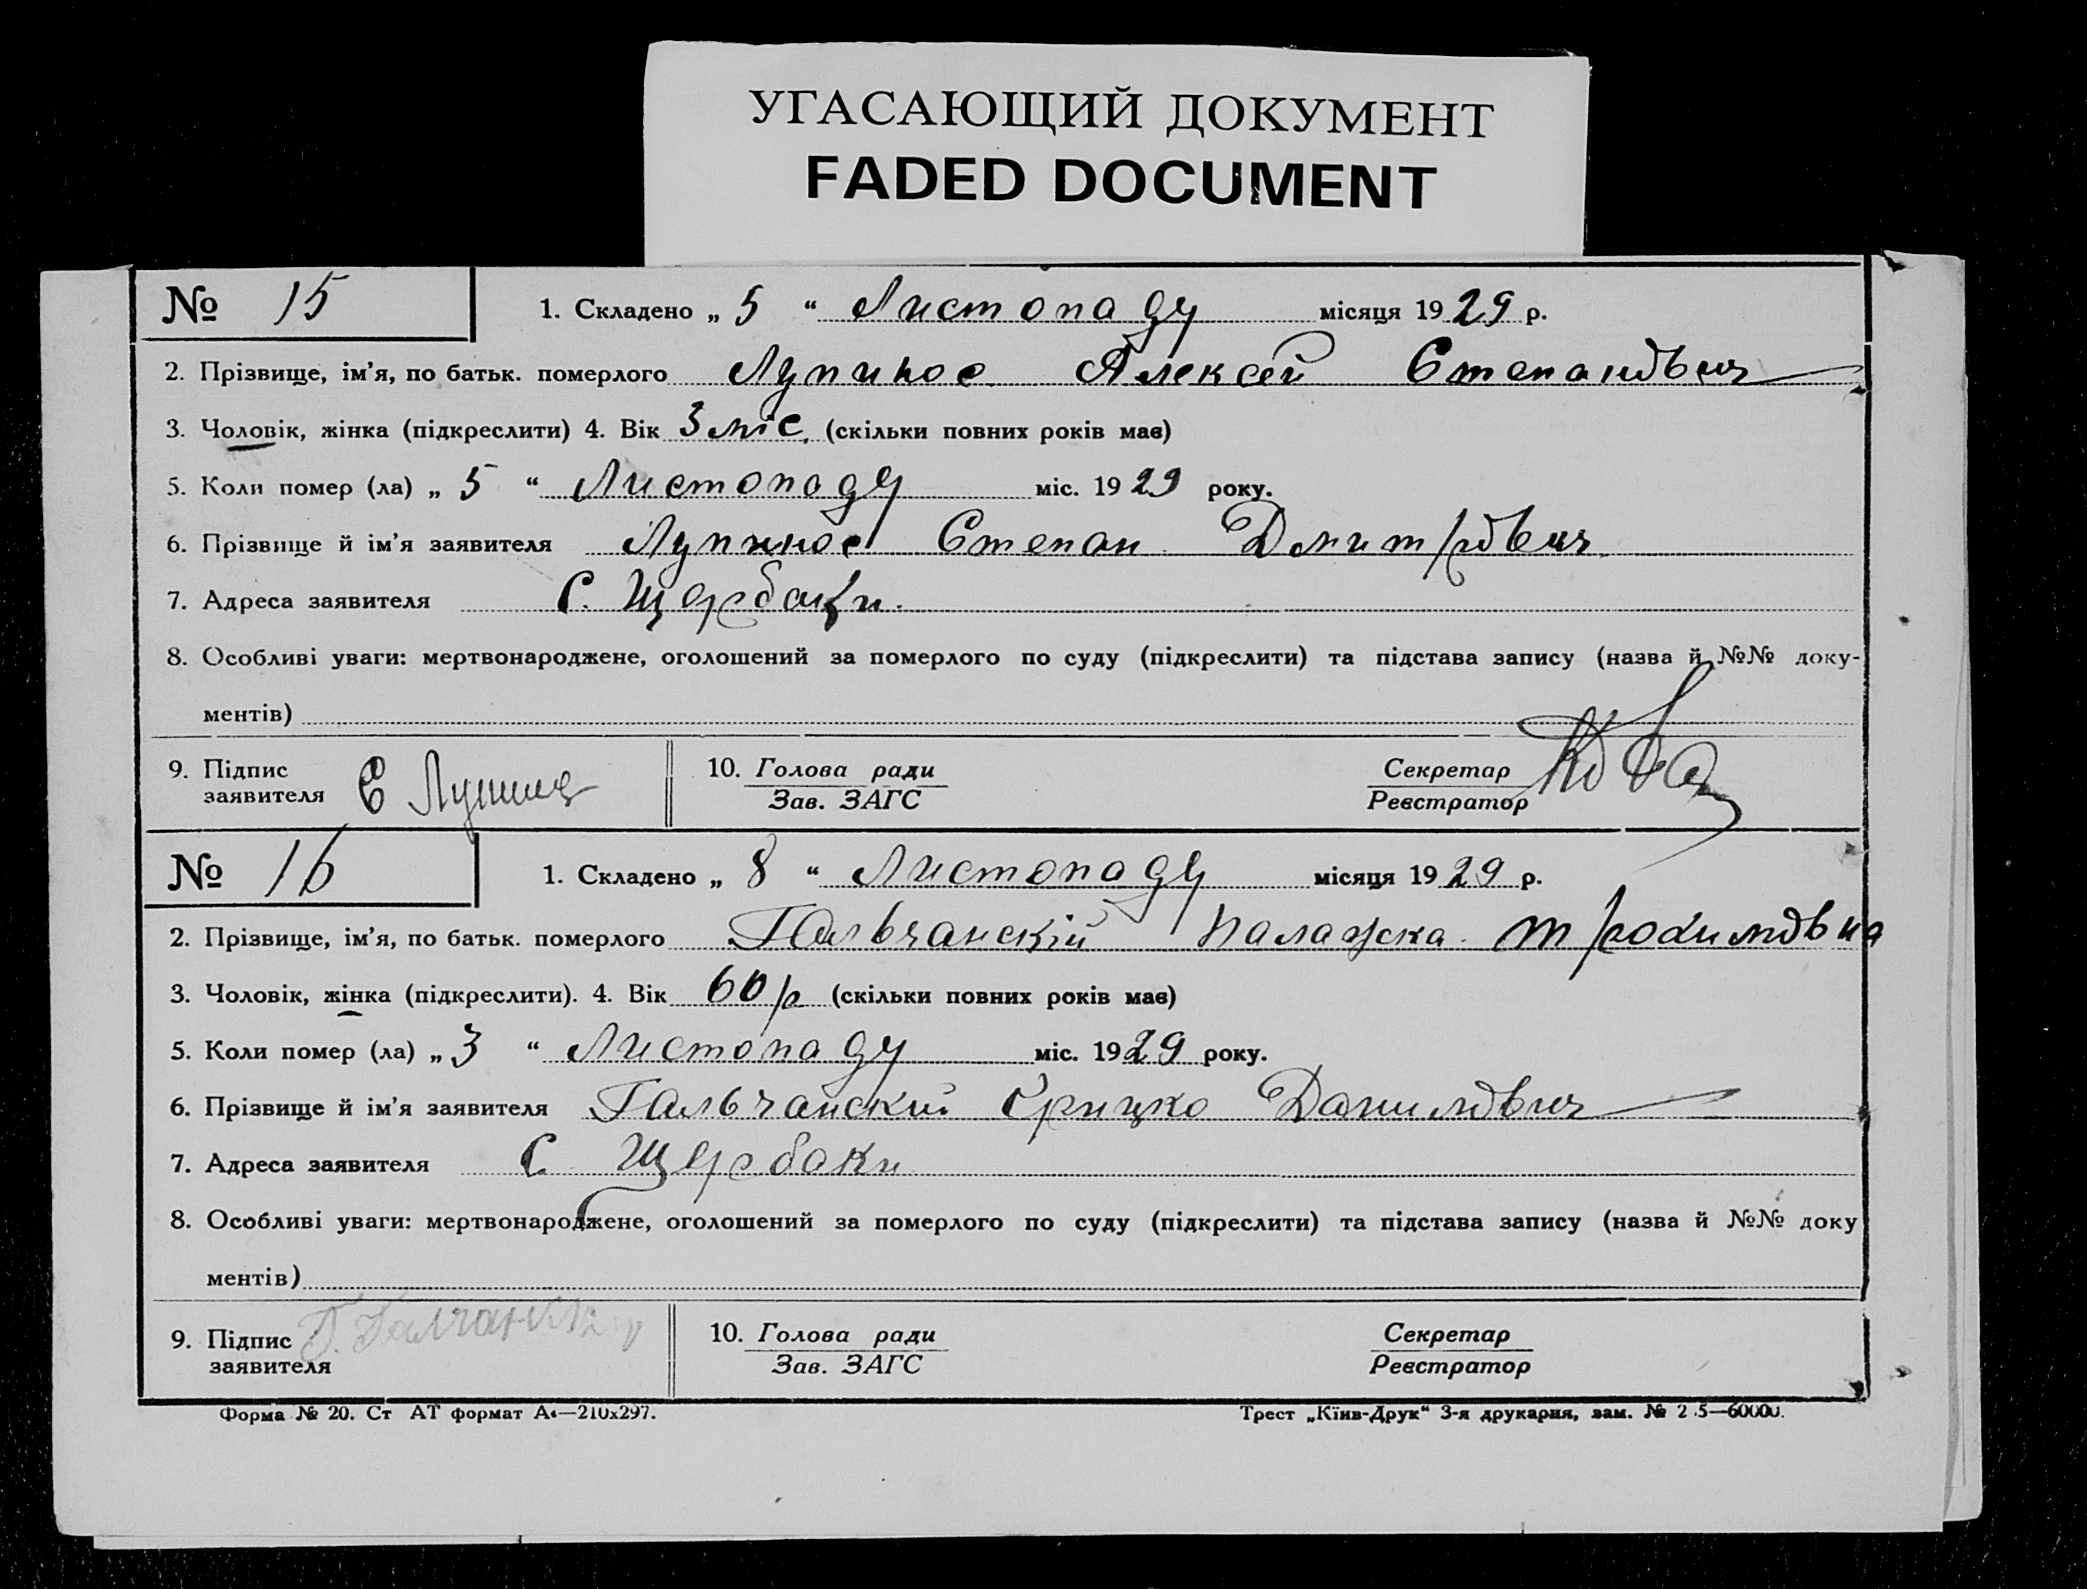 УГАСАЮЩИЙ ДОКУМЕНТ
FADED DOCUMENT
№ 15 1. Складено „ 5 “ Листопаду місяця 1929 р.
2. Прізвище, ім’я, по батьк. померлого Лупинос Алексей Степанович
3. Чоловік, жінка (підкреслити) 4. Вік 3 міс. (скільки повних років має)
5. Коли помер (ла) „ 5 “ Листопаду міс. 1929 року.
6. Прізвище й ім’я заявителя Лупинос Степан Дмитрович
7. Адреса заявителя С. Щербаки.
8. Особливі уваги: мертвонароджене, оголошений за померлого по суду (підкреслити) та підстава запису (назва й №№ доку-
ментів)
9. Підпис
заявителя С Лупинос
10. Голова ради
Зав. ЗАГС
Секретар
Реєстратор
№ 16 1. Складено „ 8 “ Листопаду місяця 1929 р.
2. Прізвище, ім’я, по батьк. померлого Гальчанскій Палажка Трохимовна
3. Чоловік, жінка (підкреслити). 4. Вік 60 р (скільки повних років має)
5. Коли помер (ла) „ 3 “ Листопаду міс. 1929 року.
6. Прізвище й ім’я заявителя Гальчанский Грицко Данилович
7. Адреса заявителя С. Щербаки
8. Особливі уваги: мертвонароджене, оголошений за померлого по суду (підкреслити) та підстава запису (назва й №№ доку
ментів)
9. Підпис
заявителя
10. Голова ради
Зав. ЗАГС
Секретар
Реєстратор
Форма № 20. Ст АТ формат А4—210x297.
Трест „Київ-Друк“ 3-я друкарня, зам. №